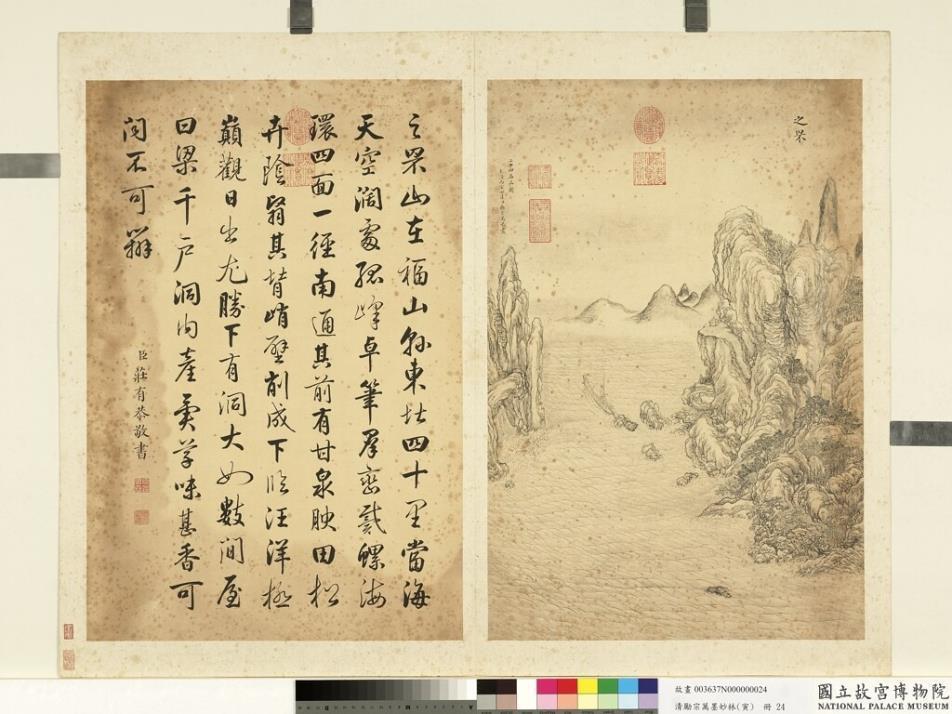 之罘
之罘山在福山縣東北四十里當海
天空闊處孤峰卓筆羣巒戴螺海
環四面一徑南通其前有甘泉腴田松
卉陰翳其背峭壁削成下臨汪洋極
巔觀日出尤勝下有洞大如數間屋
曰梁千戶洞內產味甚香可
聞不可辨
臣莊有恭敬書
故畫 003637N000000024
清勵宗萬墨妙林(寅) 冊 24
國立故宮博物院
NATIONAL PALACE MUSEUM